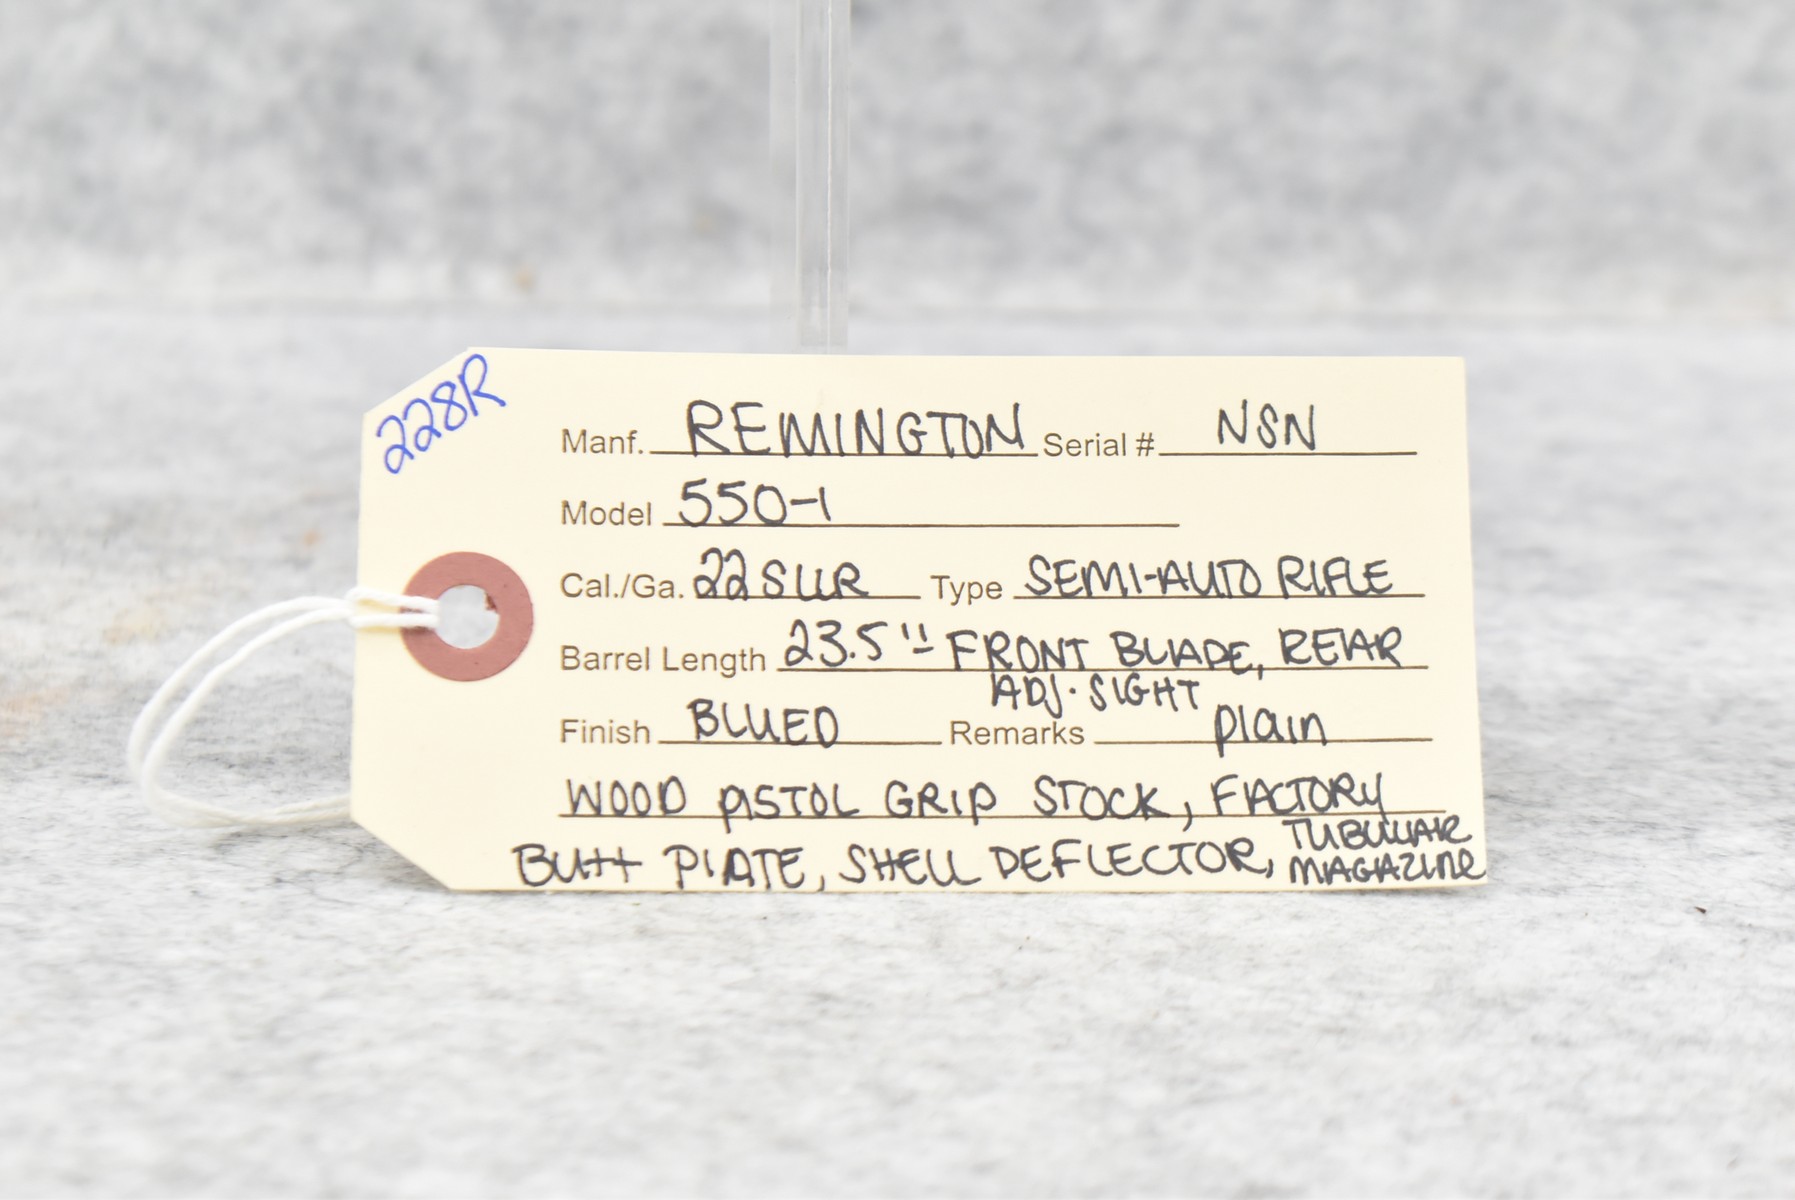 228R
Manf. REMINGTON Serial # NSN
Model 550-1
Cal./Ga. 22 SLLR Type SEMI-AUTO RIFLE
Barrel Length 23.5" FRONT BLADE, REAR
ADJ. SIGHT
Finish BLUED Remarks plain
WOOD PISTOL GRIP STOCK, FACTORY
BUTT PLATE, SHELL DEFLECTOR, TUBULAR
MAGAZINE